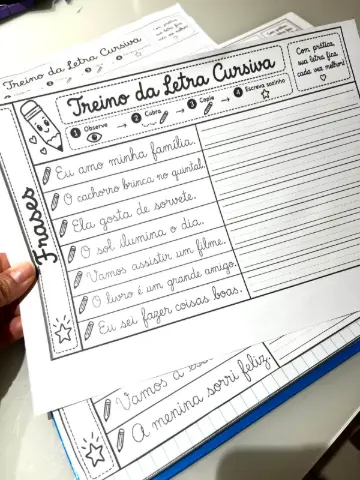 Treino da Letra Cursiva
Treino da Letra Cursiva
Com prática,
sua letra fica
cada vez melhor!
1 Observe → 2 Cubra → 3 Copie → 4 Escreva sozinho
Frases
Eu amo minha família.
O cachorro brinca no quintal.
Ela gosta de sorvete.
O sol ilumina o dia.
Vamos assistir um filme.
O livro é um grande amigo.
Eu sei fazer coisas boas.
Vamos a
A menina sorri feliz.